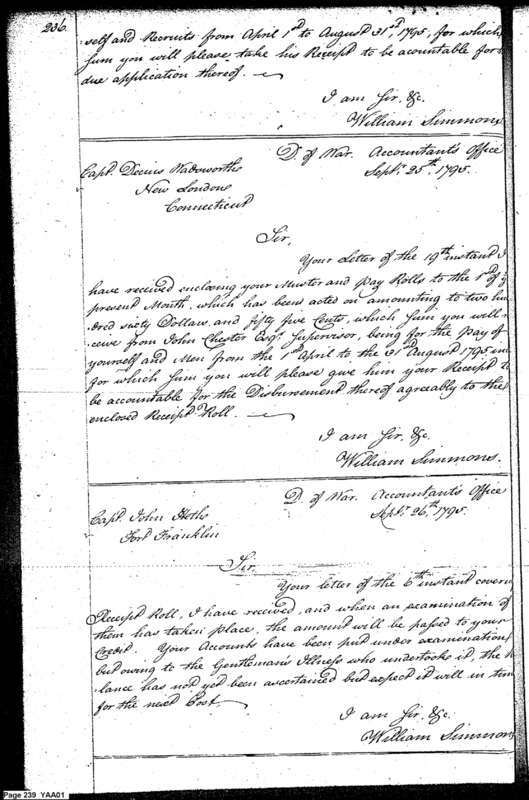 236.
self and Recruits from April 1st to August 31st, 1795, for which
Sum you will please take his Receipt to be acountable for
due application thereof.
I am Sir, &c.
William Simmons
D. of War. Accountants Office
Septr. 25th. 1795.
Capt. Decius Wadsworth
New London
Connecticut
Sir,
Your Letter of the 19th instant I
have received enclosing your Muster and Pay Rolls to the 1st of
present Month, which has been acted on amounting to two hun
dred sixty Dollars and fifty five Cents, which Sum you will re
ceive from John Chester Esqr. Supervisor, being for the Pay of
yourself and Men from the 1st April to the 31st August 1795 in
for which Sum you will please give him your Receipt to
be acountable for the Disbursement thereof agreeably to the
enclosed Receipt Roll.
I am Sir, &c.
William Simmons.
D. of War. Accountants Office
Septr. 26th. 1795.
Capt. John
Fort Franklin
Sir.
Your letter of the 6th instant covern
Receipt Roll, I have received, and when an examination of
them has taken place, the amount will be passed to your
Credit. Your Accounts have been put under examination
but owing to the Gentleman's Illness who undertooke it, the
lance has not yet been ascertained but expect it will in tim
for the next Post.
I am Sir, &c.
William Simmon
Page 239 YAA01